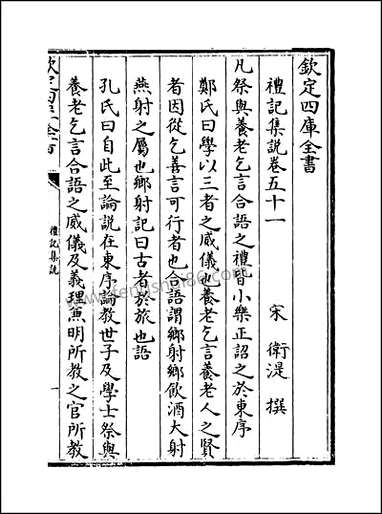 欽定四庫全書
禮記集說卷五十一
宋 衛湜 撰
凡祭與養老乞言合語之禮皆小樂正詔之於東序
鄭氏曰學以三者之威儀也養老乞言養老人之賢
者因從乞善言可行者也合語謂鄉射鄉飲酒大射
燕射之屬也鄉射記曰古者於旅也語
孔氏曰自此至論說在東序論教世子及學士祭與
養老乞言合語之威儀及義理兼明所教之官所教
禮記集說
一